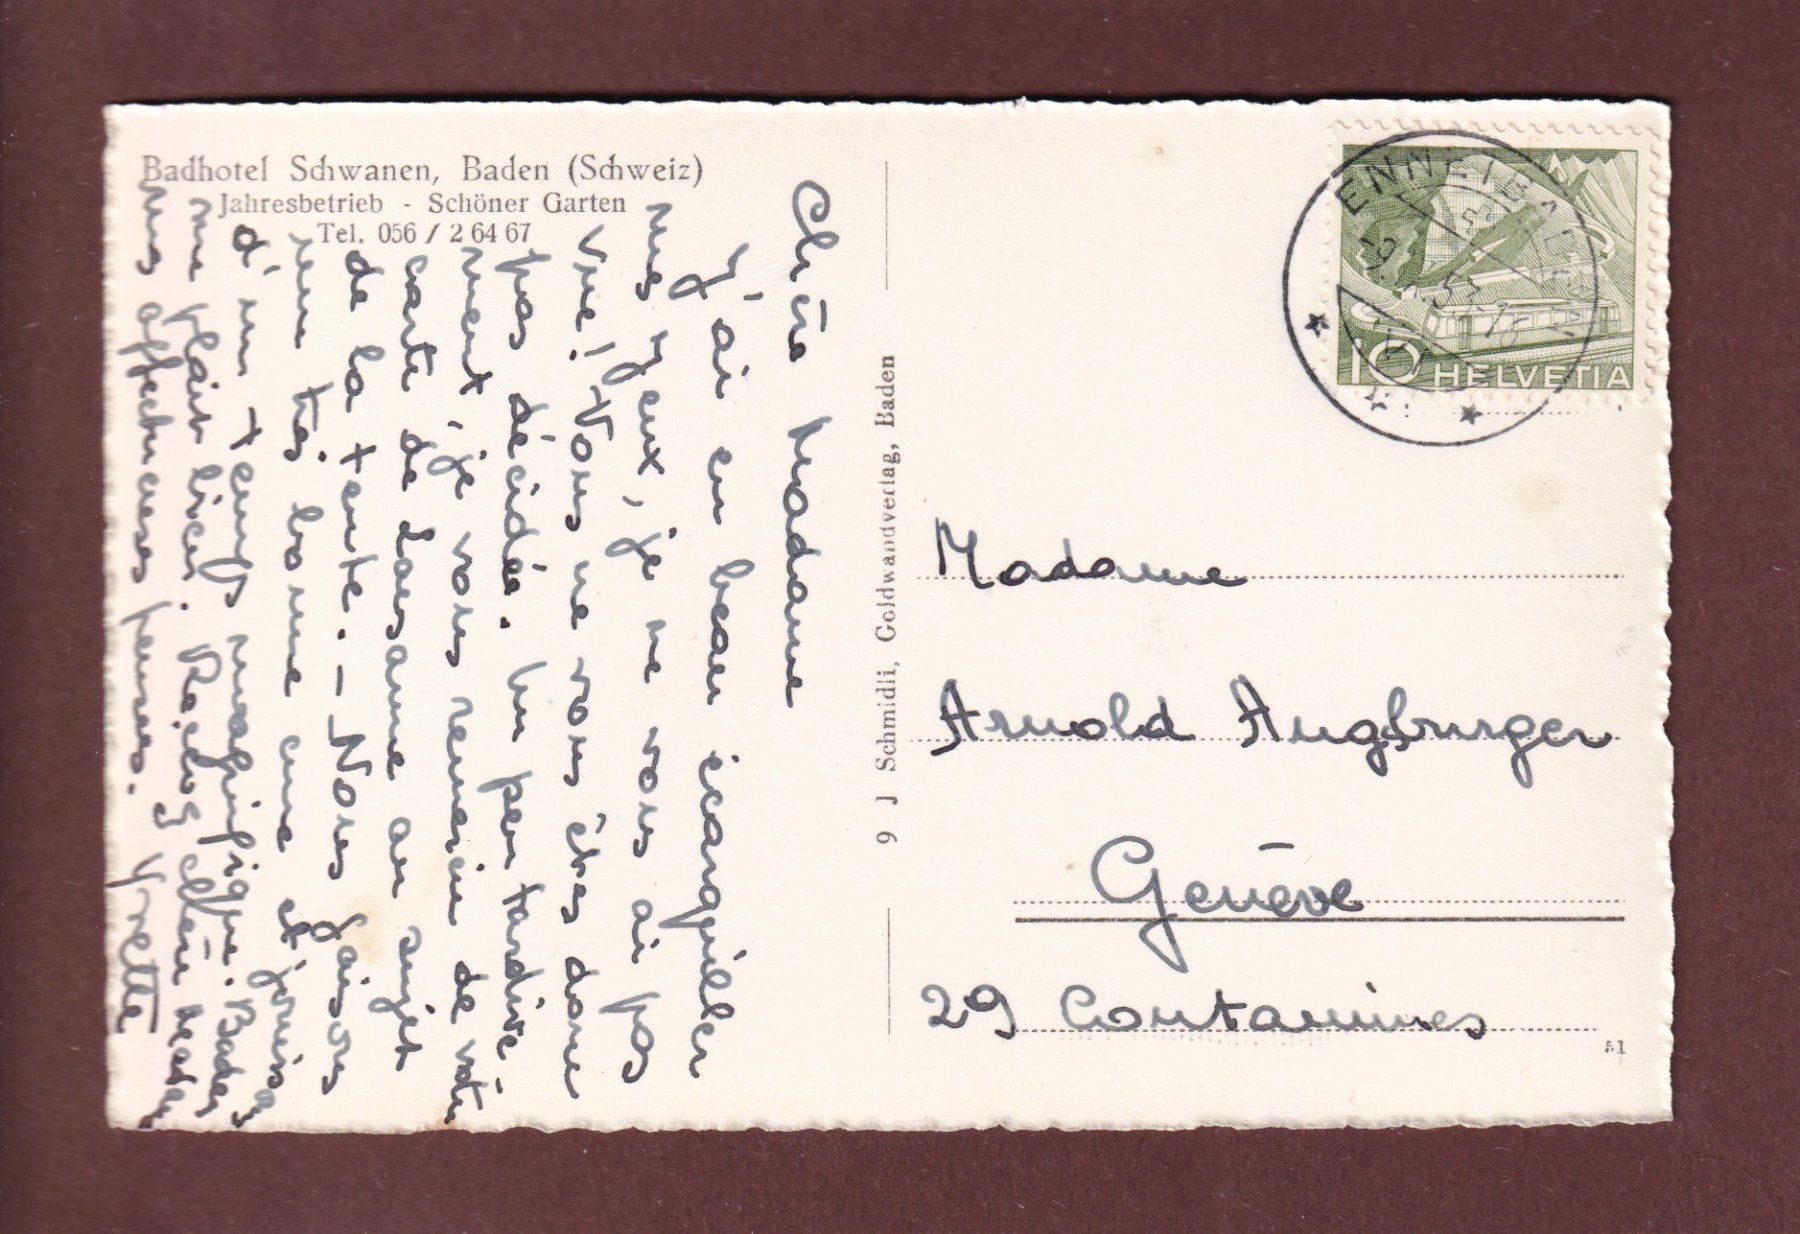 Badhotel Schwanen, Baden (Schweiz)
Jahresbetrieb - Schöner Garten
Tel. 056 / 2 64 67
Chère Madame
J'ai eu beau écarquiller
mes yeux, je ne vous ai pas
vue! Vous ne vous êtes donc
pas décidée. Un peu tardive-
ment, je vous remercie de votre
carte de Lausanne au sujet
de la tente. – Nous faisons
une très bonne cure et jouissons
d'un temps magnifique. Baden
me plaît bien. Recevez chère Madame
mes affectueuses pensées. Yvette
9 J Schmidli, Goldwandverlag, Baden
ENNETBADEN
10 HELVETIA
Madame
Arnold Augsburger
Genève
29 Contamines
51